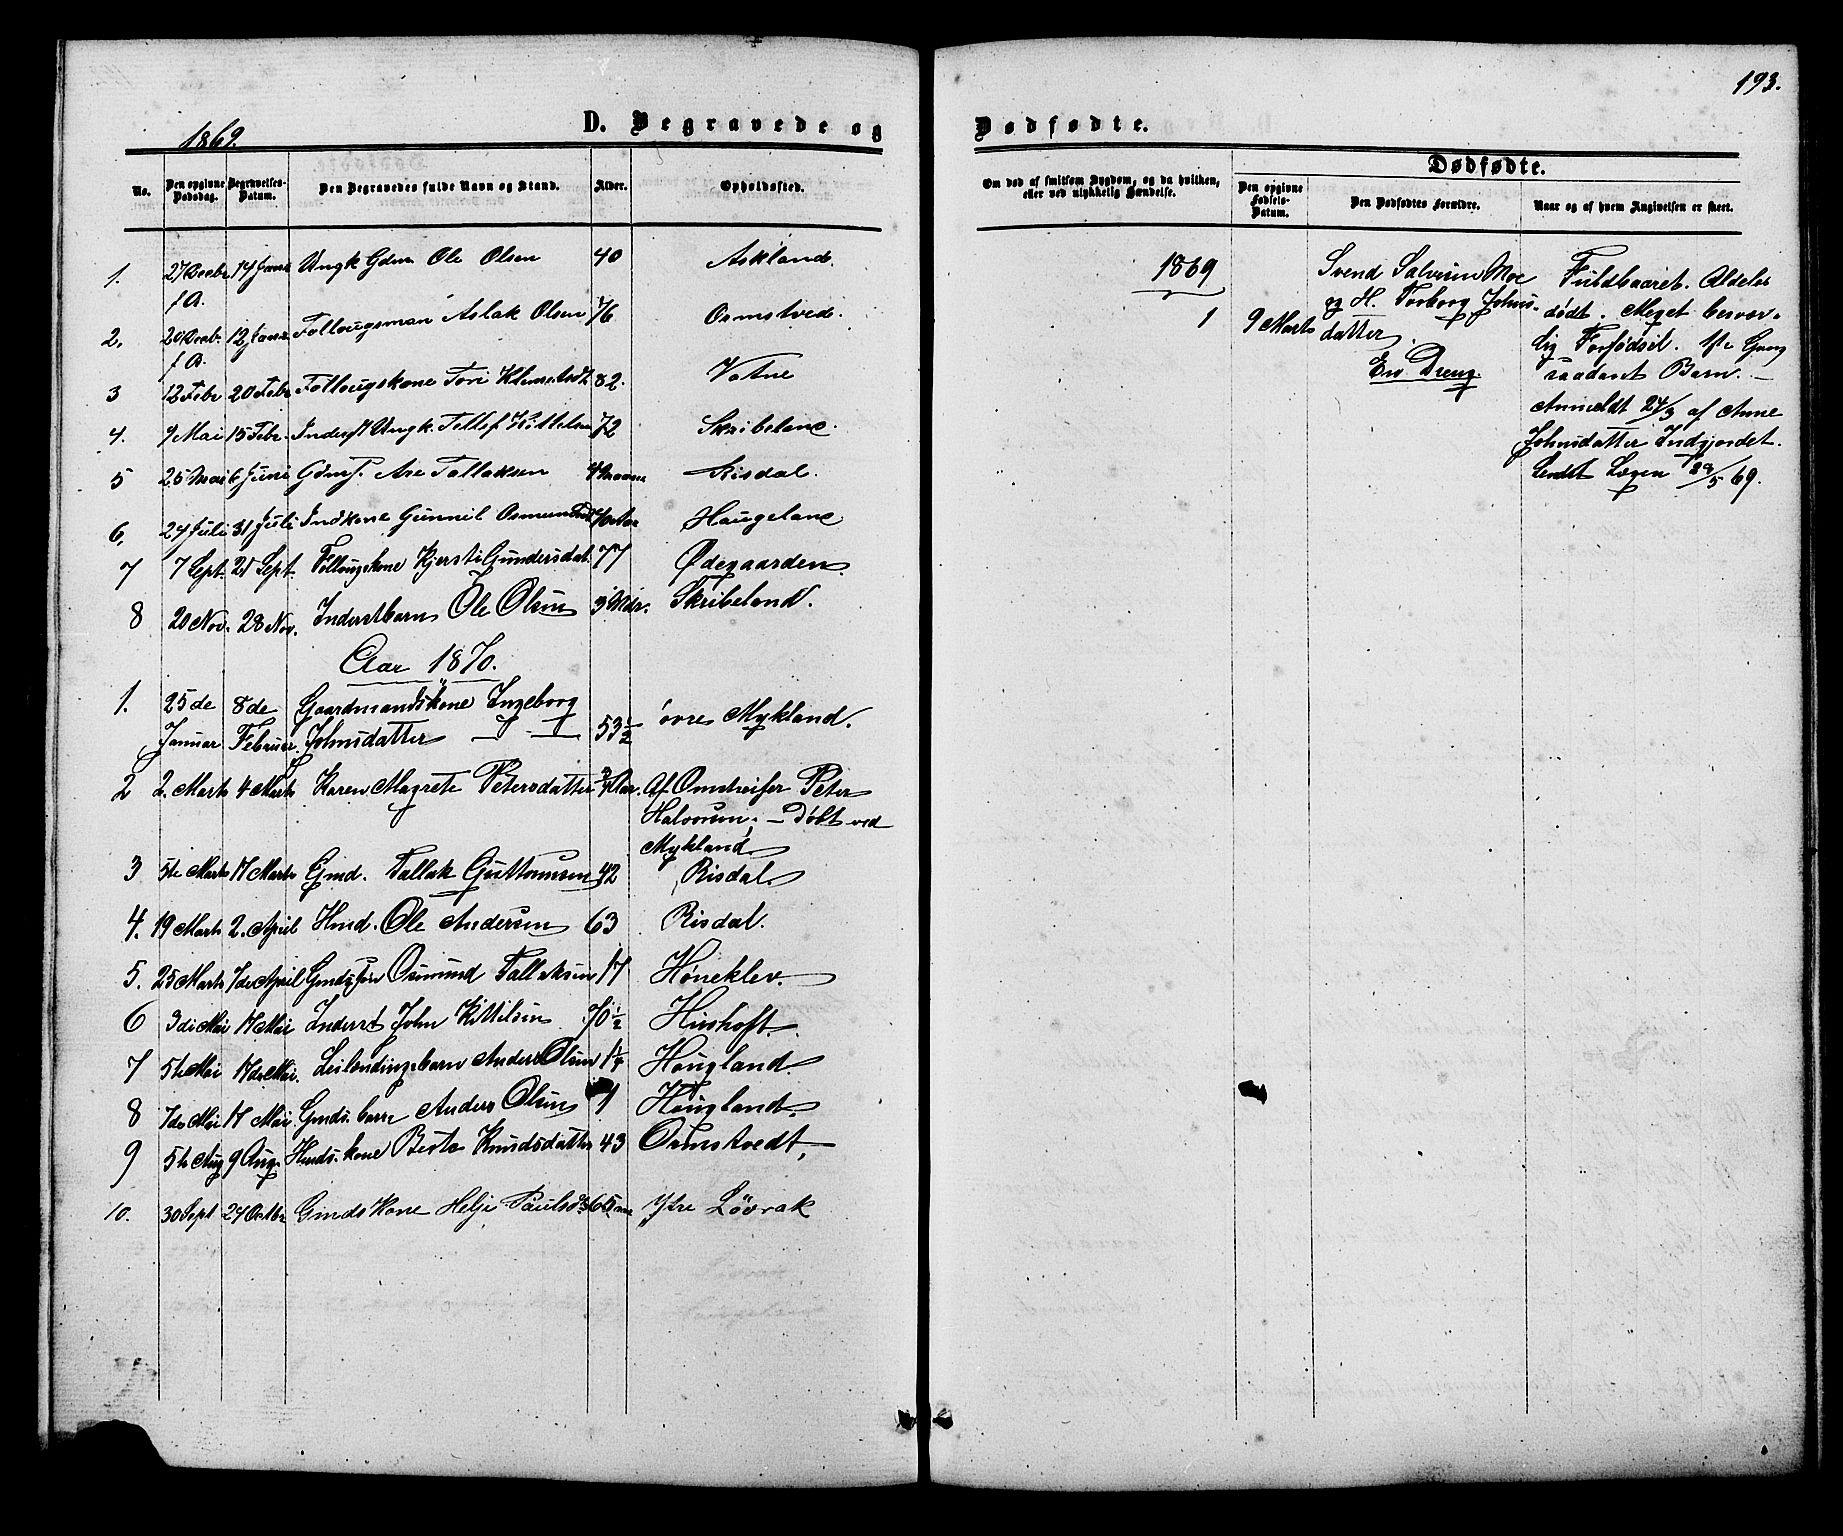 193.
1869.
D. Begravede og Dødfødte.
No. Den opgivne Dødsdag. Begravelses-Datum. Den Begravedes fulde Navn og Stand. Alder. Opholdssted.
1. 27 Decbr f A. 14 Janr Ungk Gdm Ole Olsen 40 Askland.
2. 20 Decb. f A. 12 Janr Follougsman Aslak Olsen 76 Ormstved.
3 12 Febr 20 Febr Follougskone Tori 82. Vatne
4. 9 Mai 15 Febr. Inderst Ungk. Tellef Kittelsen 72 Skribeland.
5 25 Mai 6 Juni Are Tallaksen 4 Risdal.
6. 24 Juli 31 Juli Indkone Gunnil 70 Aar Haugeland
7 7 Sept. 21 Sept. Follougskone Kjersti Gundersdat. 77 Ødegaarden.
8 20 Nov. 28 Nov. Inderstbarn Ole Olsen 3 Mdr. Skribeland.
Aar 1870.
1. 25de Januar 8de Februar Gaardmandskone Ingeborg Johnsdatter 53 1/2 øvre Mykland.
2 2. Marts 4 Marts Karen Magrete Petersdatter 3/4 Aar. Af Omstreifer Peter
Halvorsen, – Døbt ved
Mykland
3 5te Marts 17 Marts Gmd. Tallak Guttormsen 42 Risdal.
4. 19 Marts 2. April Hmd. Ole Andersen 63 Risdal.
5. 25 Marts 7de April Osmund Tallaksen 17 Høneklev.
6 3die Mai 17 Mai Inderst John Kittilsen 70 1/2 Hushoft.
7 5te Mai 17de Mai. Leilendingsbarn Anders Olsen 1 1/4 Hougland.
8 7de Mai 17 Mai Gmds. barn Anders Olsen 1 Hougland.
9 5te Aug 9 Aug. Hmds. kone Berte Knudsdatter 43 Ormstvedt,
10. 30 Sept 27 Octbr Gmdskone Helje Paulsd. 65 Ytre Løvrak
Om død af smitsom Sygdom, og da hvilken, eller ved ulykkelig Hændelse.
Dødfødte.
Den opgivne Fødsels-Datum. Den Dødfødtes Forældre. Naar og af hvem Angivelsen er skeet.
1869
1 9 Marts
Svend Salvesen Moe
og H. Torborg Johns-
datter.
En Dreng.
Fuldbaaret. Aldeles
dødt. Meget besvær-
lig Forfødsel. 1ste Gang
saadant Barn. –
Anmeldt 24/3 af Anne
Johnsdatter Indgjordet.
Sendt Lægen 29/5 69.